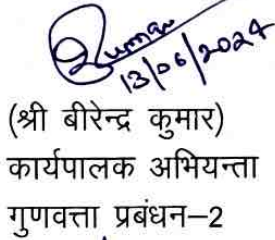 Kumar
13/06/2024
(श्री बीरेन्द्र कुमार)
कार्यपालक अभियन्ता
गुणवत्ता प्रबंधन–2